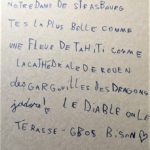 NOTRE DAME DE STRASBOURG
TES LA PLUS BELLE COMME
UNE FLEUR DE TAHITI COMME
LA CATHÉDRALE DE ROUEN
DES GARGOUILLES DES DRAGONS
j'adore! LE DIABLE OU LE
TERASSE - GROS BISON